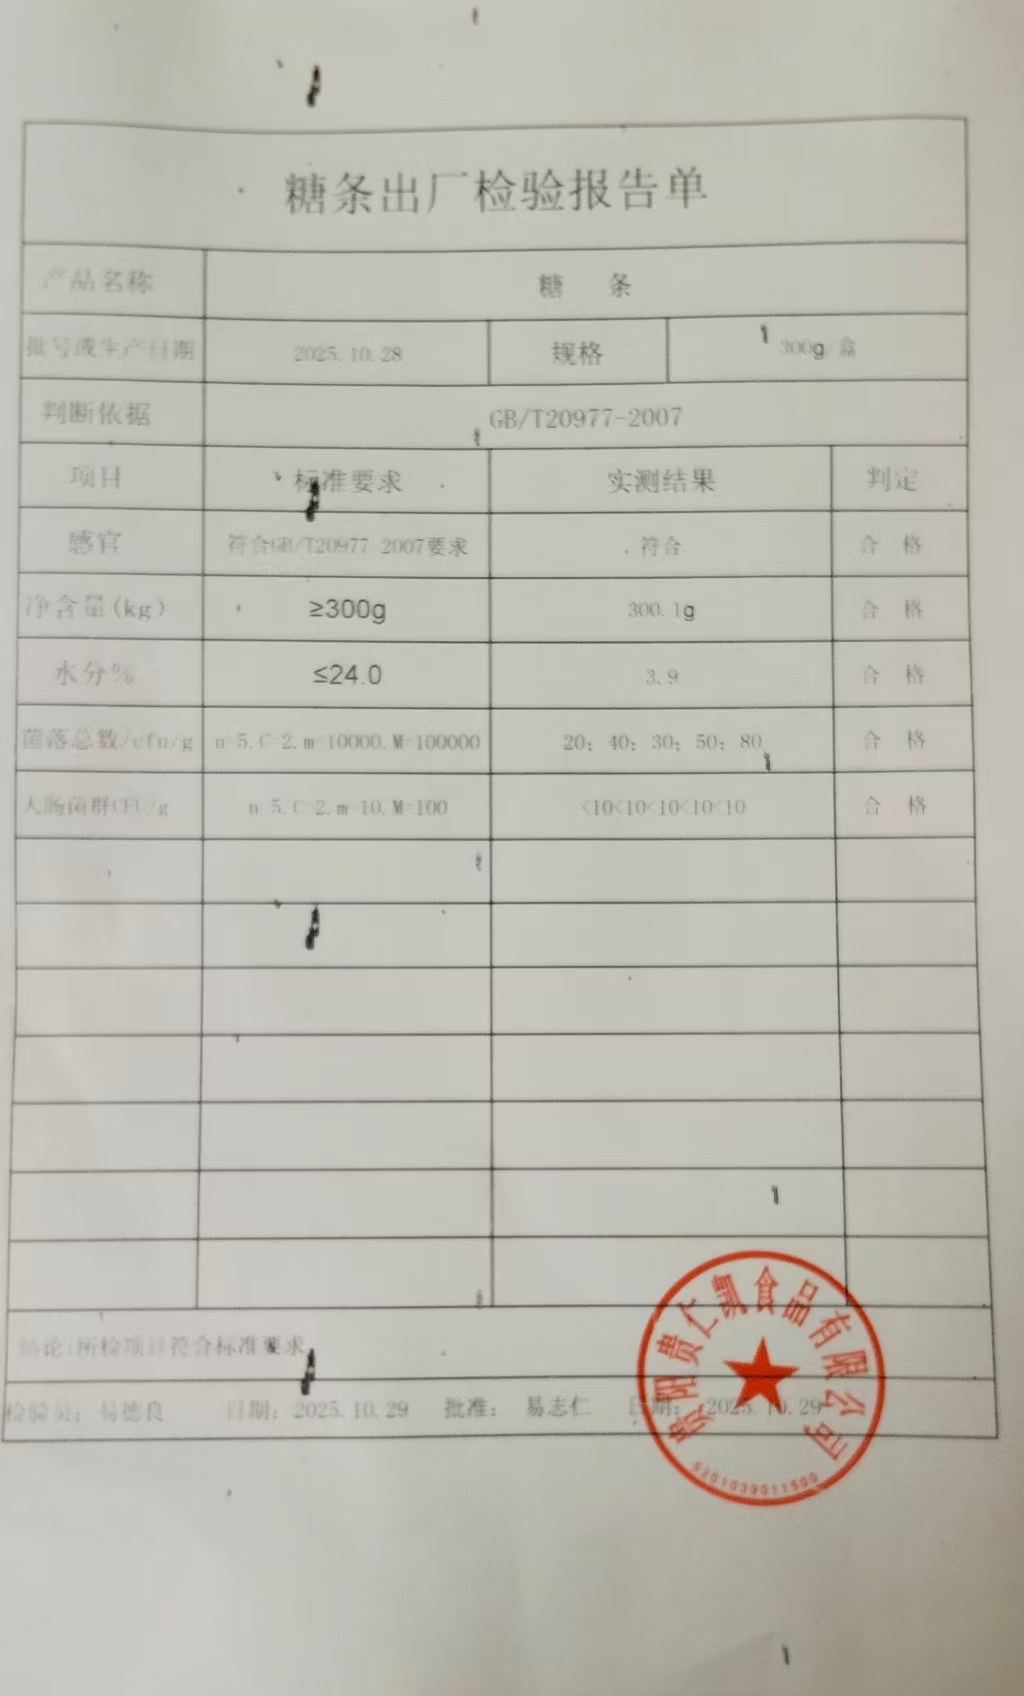 糖条出厂检验报告单
产品名称 糖 条
批号或生产日期 2025.10.28 规格 300g/盒
判断依据 GB/T20977-2007
项目 标准要求 实测结果 判定
感官 符合GB/T20977-2007要求 符合 合 格
净含量(kg) ≥300g 300.1g 合 格
水分% ≤24.0 3.9 合 格
菌落总数/cfu/g n=5.C=2.m=10000.M=100000 20; 40; 30; 50; 80 合 格
大肠菌群CFU/g n=5.C=2.m=10.M=100 <10<10<10<10<10 合 格
结论:所检项目符合标准要求
检验员: 易德良 日期: 2025.10.29 批准: 易志仁 日期: 2025.10.29
贵阳贵仁凯食品有限公司